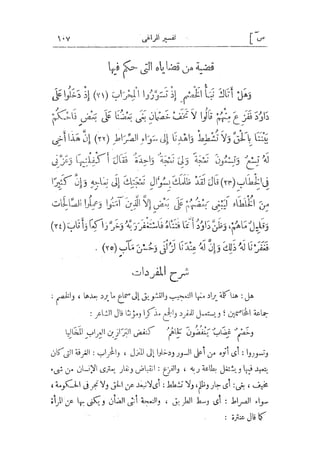 ص] تفسير المراغى ١٠٧
قضية من قضاياه التى حكم فيها
وَهَلْ أَتَاكَ نَبَأُ الْخَصْمِ إِذْ تَسَوَّرُوا الْمِحْرَابَ (٢١) إِذْ دَخَلُوا عَلَى
دَاوُدَ فَفَزِعَ مِنْهُمْ قَالُوا لَا تَخَفْ خَصْمَانِ بَغَى بَعْضُنَا عَلَى بَعْضٍ فَاحْكُمْ
بَيْنَنَا بِالْحَقِّ وَلَا تُشْطِطْ وَاهْدِنَا إِلَى سَوَاءِ الصِّرَاطِ (٢٢) إِنَّ هَذَا أَخِى
لَهُ تِسْعٌ وَتِسْعُونَ نَعْجَةً وَلِىَ نَعْجَةٌ وَاحِدَةٌ فَقَالَ أَكْفِلْنِيهَا وَعَزَّنِى
فِى الْخِطَابِ (٢٣) قَالَ لَقَدْ ظَلَمَكَ بِسُؤَالِ نَعْجَتِكَ إِلَى نِعَاجِهِ وَإِنَّ كَثِيرًا
مِنَ الْخُلَطَاءِ لَيَبْغِى بَعْضُهُمْ عَلَى بَعْضٍ إِلَّا الَّذِينَ آمَنُوا وَعَمِلُوا الصَّالِحَاتِ
وَقَلِيلٌ مَاهُمْ، وَظَنَّ دَاوُدُ أَنَّمَا فَتَنَّاهُ فَاسْتَغْفَرَ رَبَّهُ وَخَرَّ رَاكِعًا وَأَنَابَ (٢٤)
فَغَفَرْنَا لَهُ ذَلِكَ وَإِنَّ لَهُ عِنْدَنَا لَزُلْفَى وَحُسْنَ مَآبٍ (٢٥).
شرح المفردات
هل: هنا كلمة يراد منها التعجيب والتشويق إلى سماع ما يرد بعدها، والخصم:
جماعة المخاصمين؛ ويستعمل للمفرد والجمع مذكرا ومؤنثا قال الشاعر:
وخصم غضاب ينفضون لحاهم كنفض البراذين العراب المخاليا
وتسوروا: أى أتوه من أعلى السور ودخلوا إلى المنزل، والمحراب: الغرفة التى كان
يتعبد فيها ويشتغل بطاعة ربه، والفزع: انقباض ونفار يعترى الإنسان من شىء
مخيف، بغى: أى جار وظلم، ولا تشطط: أى لا تبعد عن الحق ولا تجر فى الحكومة،
سواء الصراط: أى وسط الطريق، والنعجة أنثى الضأن ويكنى بها عن المرأة
كما قال عنترة: